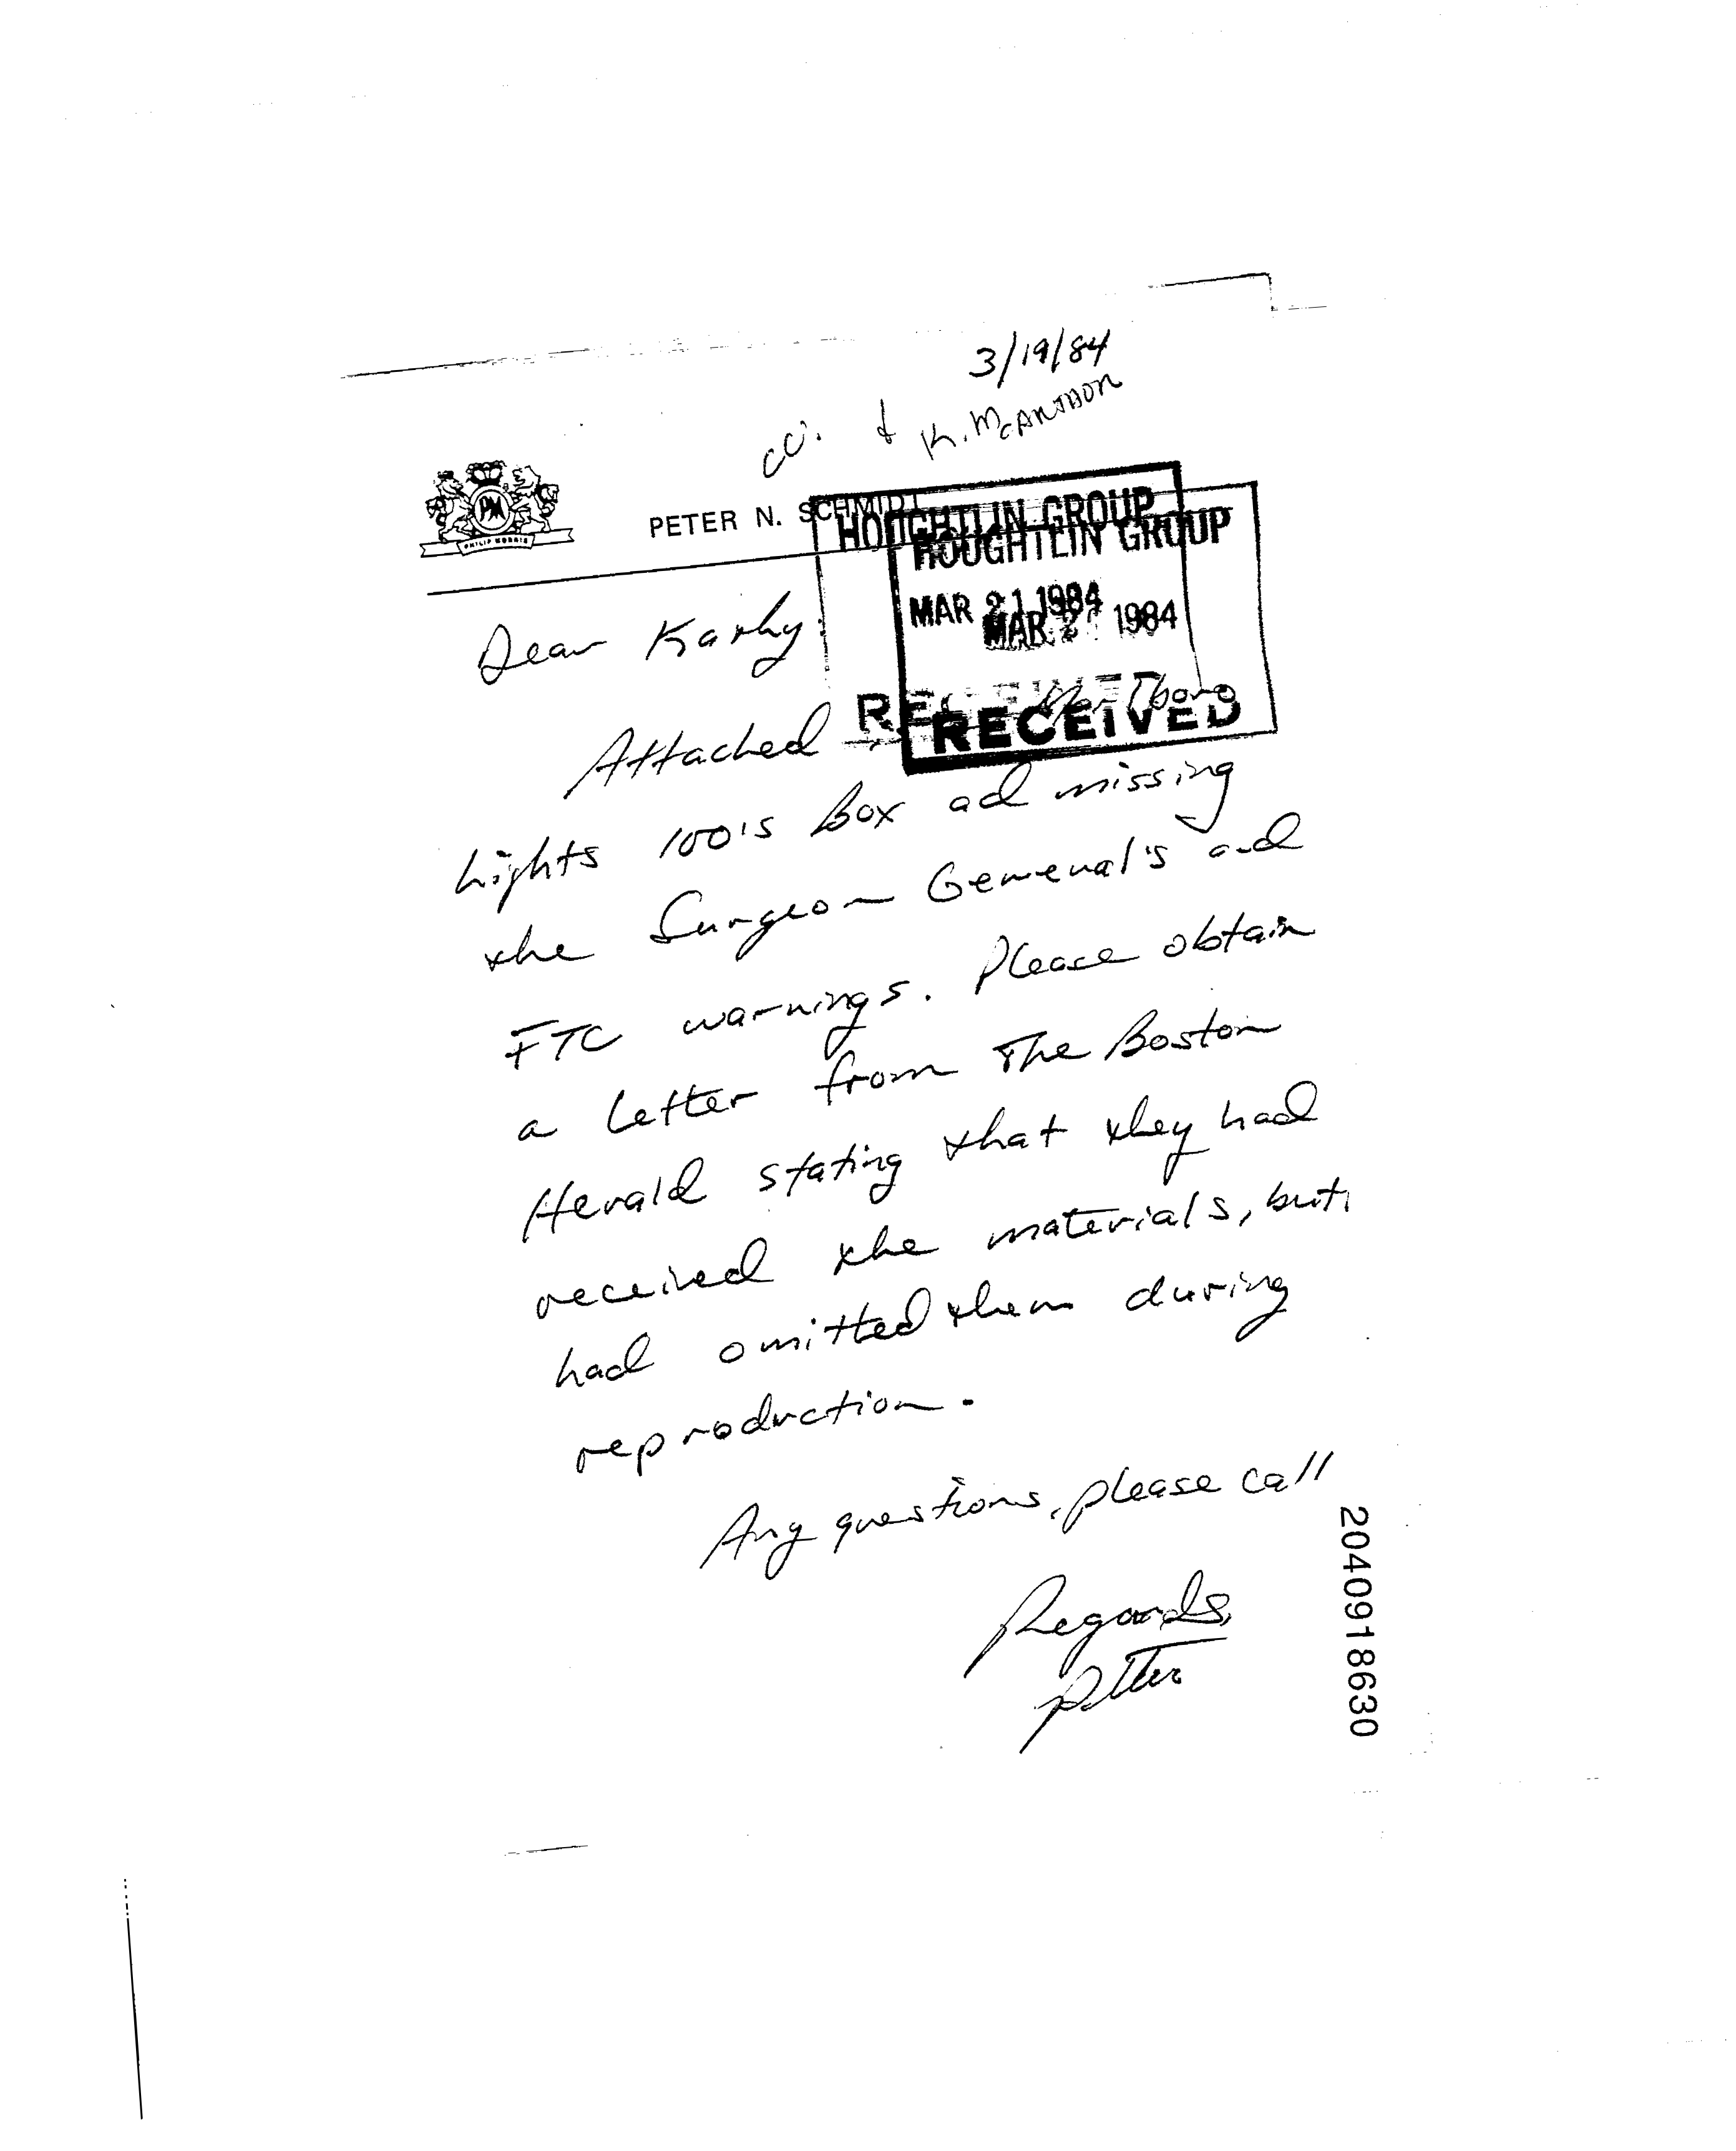 3/19/84
cc: K. McARTHOR
PM
PHILIP MORRIS
PETER N. SCHMIDT
HOUGHTLIN GROUP
HOUGHTLIN GROUP
MAR 21 1984
MAR 2 1984
Dear Karhy:
RECEIVED
Attached Marlboro
RECEIVED
Lights 100's Box ad missing
the Surgeon General's and
FTC warnings. Please obtain
a letter from The Boston
Herald stating that they had
received the materials, but
had omitted them during
reproduction.
Any questions, please call
Regards,
Peter
2040918630